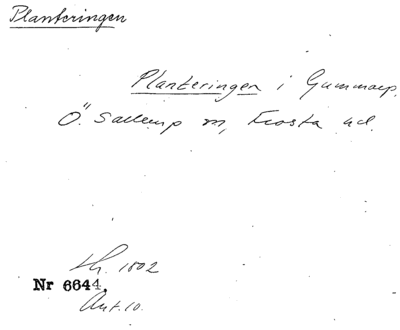 Planteringen
Planteringen i Gummarp,
Ö. Sallerup sn, Frosta hd.
Lh. 1802
Nr 6644.
Ant. 10.